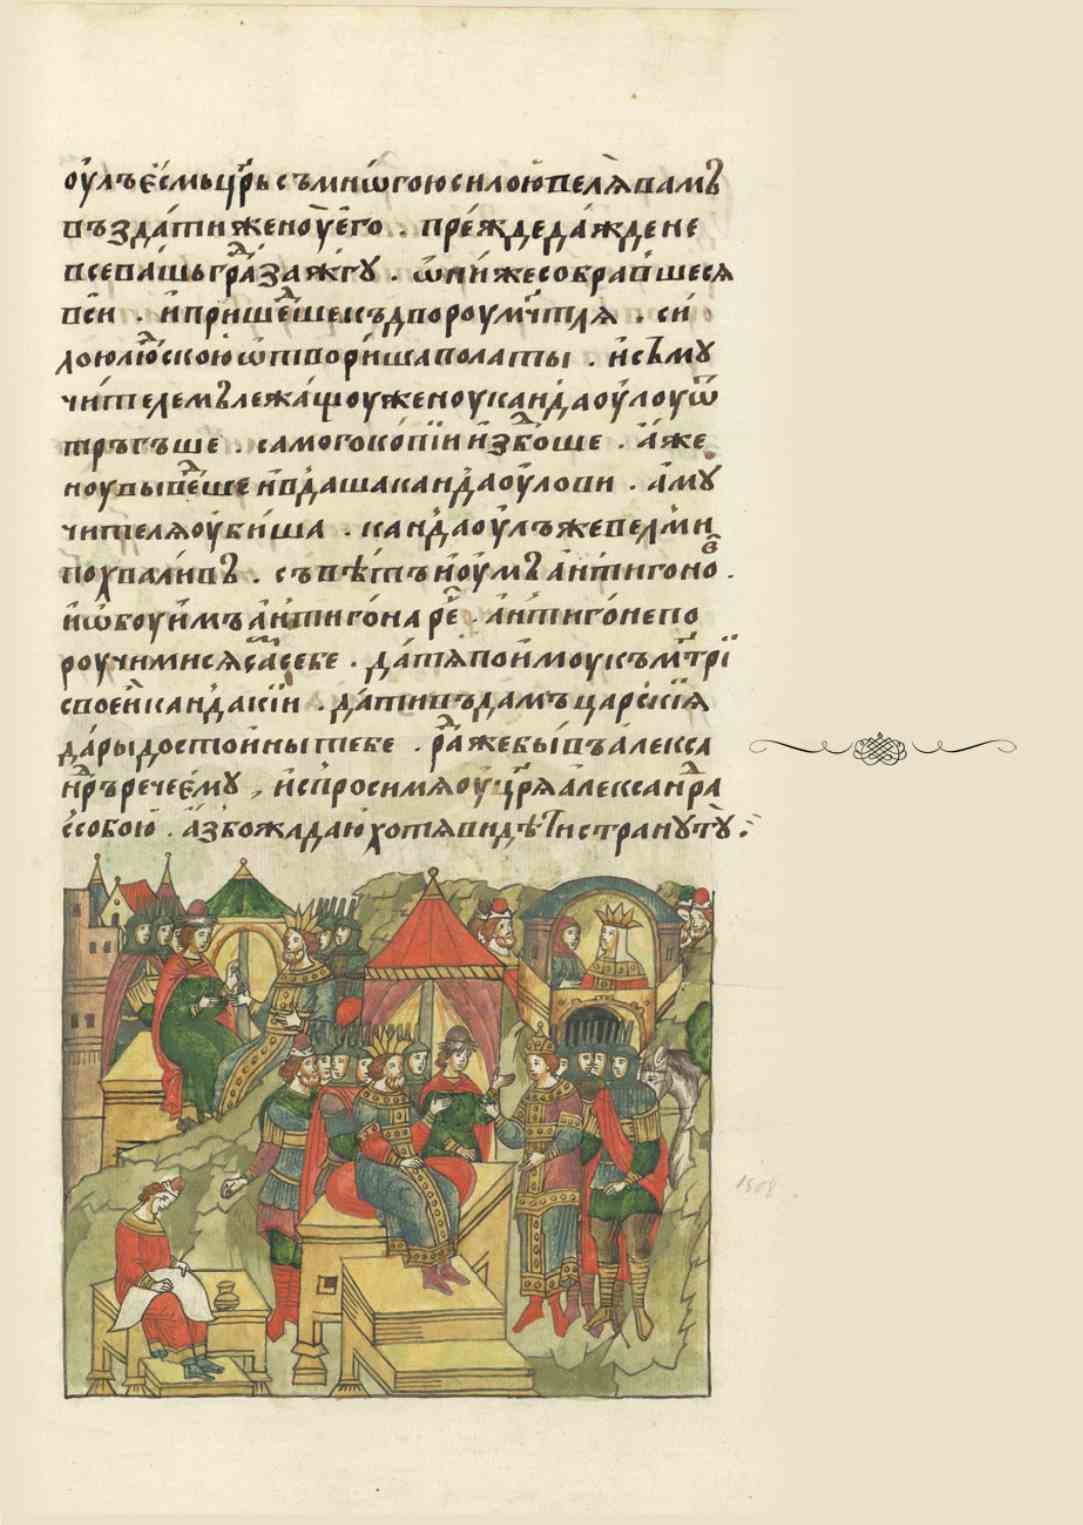 оу҆лъ є҆́смь цр҃ь съ мнѡ́гою силою повелѧ̀ вамъ
въздати женоу̀ е҆го̀ . пре́жде да́жде не
всѐ ва́шь гра́дⷣ зажгꙋ̀ . ѡ҆ни́ же собра́вшесѧ
вси̑ . и҆ прише́дⷣше къ двороу мч҃тлѧ . си́
лою лю́дⷣскою ѿтвори́ша полаты . и҆ сѣ́мꙋ
чи́телемъ лежа́щоу женоу канда́оу́лоу ѿ
тръгъше . самого ко́пїи и҆збо́дⷣше . а҆́ же
ноу вы́ве́дⷣше и҆ вда́ша канда́оу́лови . а҆ мꙋ
чителѧ оу҆би́ша . канда́оу́лъ же велмѝ
похвали́въ . съвѣ́тъ и҆ оу́мъ а҆нтиго́новⷡ .
и҆ ѡ҆боуи́мъ а҆нтиго́на ре́чⷱ . а҆нтиго́не по
роучи́ ми сѧ са́мⷨ себе . да́ тѧ пои́моу къ мт҃рїи
своеи҆̀ кандакі́и . да́ ти въда́мъ ца́рскїѧ
да́ры досто́йны тебе . ра́дⷣ же бы́въ а҆лекса
н́дⷣръ рече е҆мꙋ̀ , и҆спроси́ мѧ оу҆ цр҃ѧ а҆лекса́ндⷣра
с собо́ю . а҆́з бо жада́ю хотѧ̀ ви́дѣти странꙋ тꙋ̀ .
1508